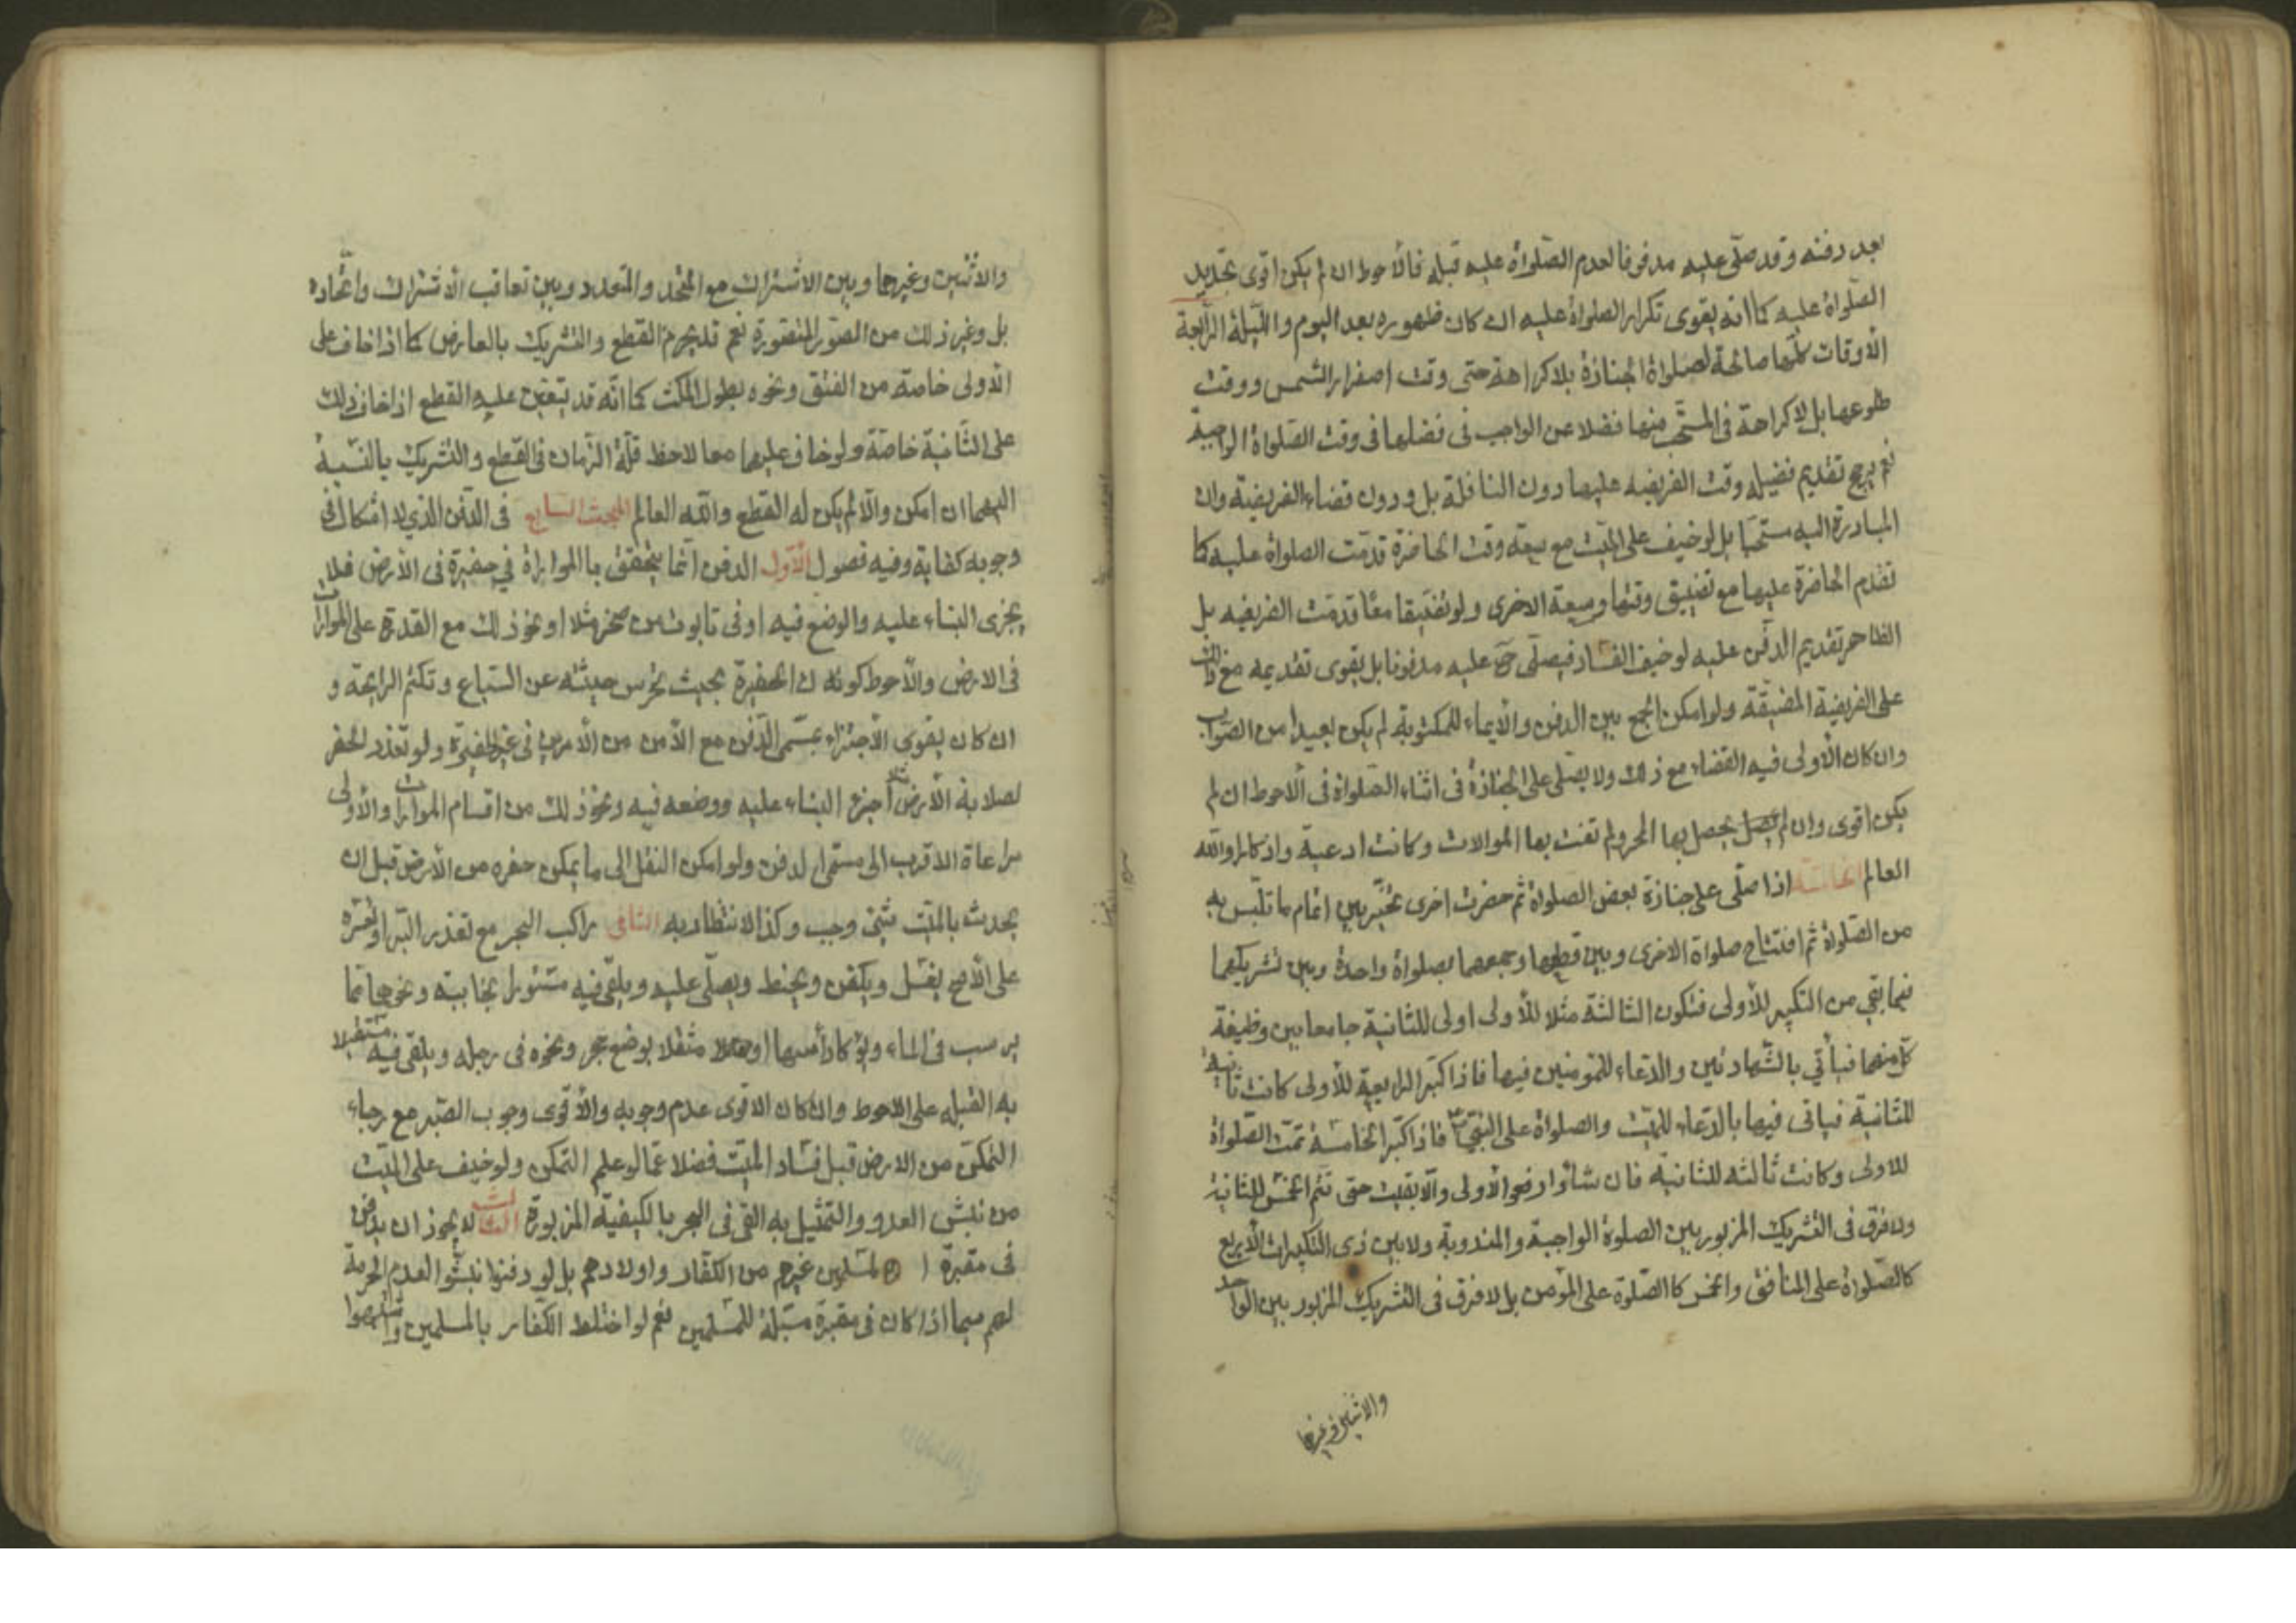 بعد دفنه وقد صلّى عليه مدفونا لعدم الصّلواة عليه قبله فالأحوط ان لم يكن اقوى تجديد
الصّلواة عليه كما انه يقوى تكرار الصلواة عليه ان كان ظهوره بعد اليوم والليلة الرابعة
الأوقات كلّها صالحة لصلواة الجنازة بلا كراهة حتى وقت اصفرار الشمس ووقت
طلوعها بل لا كراهة في المستحب منها فضلا عن الواجب في فضلها في وقت الصّلواة الواجبة
نعم يرجح تقديم فضيلة وقت الفريضه عليها دون النافلة بل ودون قضاء الفريضة وان
المبادرة اليه مستحبا بل لو خيف على الميّت مع سعة وقت الحاضرة قدمت الصلواة عليه كما
تقدم الحاضرة عليها مع تضييق وقتها وسعة الاخرى ولو تضيّقا معًا قدمت الفريضه بل
الظاهر تقديم الدفن عليه لو خيف الفساد فيصلّى ح عليه مدفونا بل يقوى تقديمه مع ذلك
على الفريضة المضيقة ولو امكن الجمع بين الدفن والايماء للمكتوبة لم يكن بعيدا من الصواب
وان كان الأولى فيه القضاء مع ذلك ولا يصلى على الجنازة في اثناء الصلواة في الأحوط ان لم
يكن اقوى وان لم يحصل بها المحو ولم تفت بها الموالات وكانت ادعية واذكارا والله
العالم الخامسة اذا صلّى على جنازة بعض الصلواة ثم حضرت اخرى تخيّر بين اتمام ما تلّبس به
من الصّلواة ثم افتتاح صلواة الاخرى وبين قطعها وجمعهما بصلواة واحدة وبين تشريكهما
فيما بقي من التكبير للأولى فتكون الثالثة مثلا للأولى اولى للثانية جامعا بين وظيفة
كل منهما فيأتي بالشّهادتين والدّعاء للمؤمنين فيها فاذا كبّر الرابعة للأولى كانت ثانية
للثانية فياتى فيها بالدّعاء للميّت والصلواة على النبي ص فاذا كبّر الخامسة تمّت الصّلواة
للاولى وكانت ثالثه للثانية فان شاؤا رفعوا الأولى والا بقيت حتى تتم الخمس للثانية
ولا فرق في التشريك المزبور بين الصلوة الواجبة والمندوبة ولا بين ذى التكبيرات الأربع
كالصّلواة على المنافق والخمس كالصّلوة على المؤمن بل لا فرق في التشريك المزبور بين الواحد
والاثنين وغيرها
والاثنين وغيرها وبين الاشتراك مع المتّحد والمتعدد وبين تعاقب الاشتراك واتّحاده
بل وغير ذلك من الصّور المتصّورة نعم قد يحرم القطع والتشريك بالعارض كما اذا خاف على
الاولى خاصة من الفتق ونحوه بطول المكث كما انّه قد يتعيّن عليه القطع اذا خاف ذلك
على الثّانية خاصّة ولو خاف عليهما معا لاحظ قلّة الزمان في القطع والتشريك بالنّسبة
اليهما ان امكن والّا لم يكن له القطع والله العالم المبحث السابع في الدّفن الذي لا اشكال في
وجوبه كفاية وفيه فصول الأوّل الدفن انّما يتحقق بالموارات في حفيرة في الأرض فلا
يجزى البناء عليه والوضع فيه او في تابوت من صخر مثلا او نحو ذلك مع القدرة على الموارات
في الارض والأحوط كون تلك الحفيرة بحيث تحرس جثته عن السّباع وتكتم الرايحة و
ان كان يقوى الأجتزاء بمسّمى الدّفن مع الأمن من الأمرين في غير الحفيرة ولو تعذر الحفر
لصلابة الأرض مثلا اجزء البناء عليه ووضعه فيه ونحو ذلك من اقسام الموارات والأولى
مراعاة الاقرب الى مسمى الدفن ولو امكن النقل الى ما يمكن حفره من الأرض قبل ان
يحدث بالميّت شئ وجب وكذا الانتظار به الثاني راكب البحر مع تعذر البّر او تعسّره
على الأصح يغسّل ويكفن ويحنط ويصلّى عليه ويلقى فيه مستورا بخابية ونحوها مما
يرسب في الماء ويوكأ رأسها او مثقلا بوضع حجر ونحوه في رجله ويلقى فيه مستقبلا
به القبله على الاحوط وان كان الاقوى عدم وجوبه والأقوى وجوب الصّبر مع رجاء
التمكّن من الارض قبل فساد الميّت فضلا عمّا لو علم التمكن ولو خيف على الميّت
من نبش العدو والتمثيل به القى في البحر بالكيفية المزبورة الثالث لا يجوز ان يدفن
في مقبرة المسلمين غيرهم من الكفّار واولادهم بل لو دفنوا نبشوا لعدم الحرمة
لهم سيما اذا كان في مقبرة مسّبلة للمسلمين نعم لو اختلط الكفّار بالمسلمين واشتبهوا